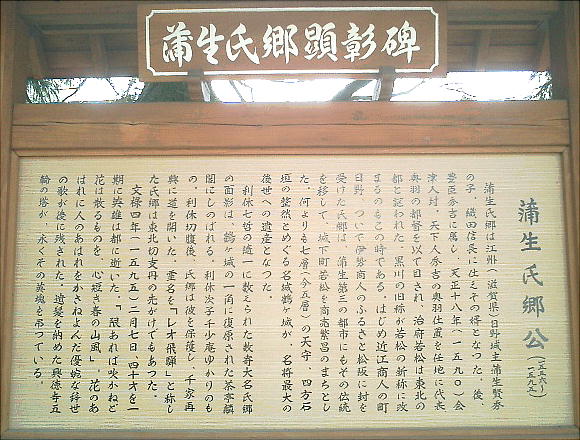 蒲生氏郷顕彰碑
蒲生氏郷公(一五五六~一五九五)
蒲生氏郷は江州(滋賀県)日野城主蒲生賢秀
の子、織田信長に仕えその婿となった。後、
豊臣秀吉に属し、天正十八年(一五九〇)会
津入封。天下人秀吉の奥羽仕置を任地に代表
奥羽の都督を以て目され、治府若松は東北の
都と謳われた。黒川の旧称が若松の新称に改
まるのもこの時である。はじめ近江商人の町
日野、ついで伊勢商人のふるさと松阪に封を
受けた氏郷は、蒲生第三の都市にもその伝統
を移して、城下町若松を商高繁昌のまちとし
た。何よりも七層(今五層)の天守、四方石
垣の整然とめぐる名城鶴ヶ城が、名将最大の
後世への遺産となった。
利休七哲の随一に数えられた数奇大名氏郷
の面影は、鶴ヶ城の一角に復原された茶亭麟
閣にしのばれる。利休次子千少庵ゆかりのも
の。利休切腹後、氏郷は彼を保護し、千家再
興に道を開いた。霊名を「レオ飛騨」と称し
た氏郷は東北切支丹の先がけでもあった。
文禄四年(一五九五)二月七日、四十才を一
期に英雄は都に逝いた。「限あれば吹かねど
花は散るものを 心短き春の山風」。花のあ
はれに人のあはれをかさねよんだ優婉な辞世
の歌が後に残された。遺髪を納めた興徳寺五
輪の塔が、永くその英魂を弔っている。